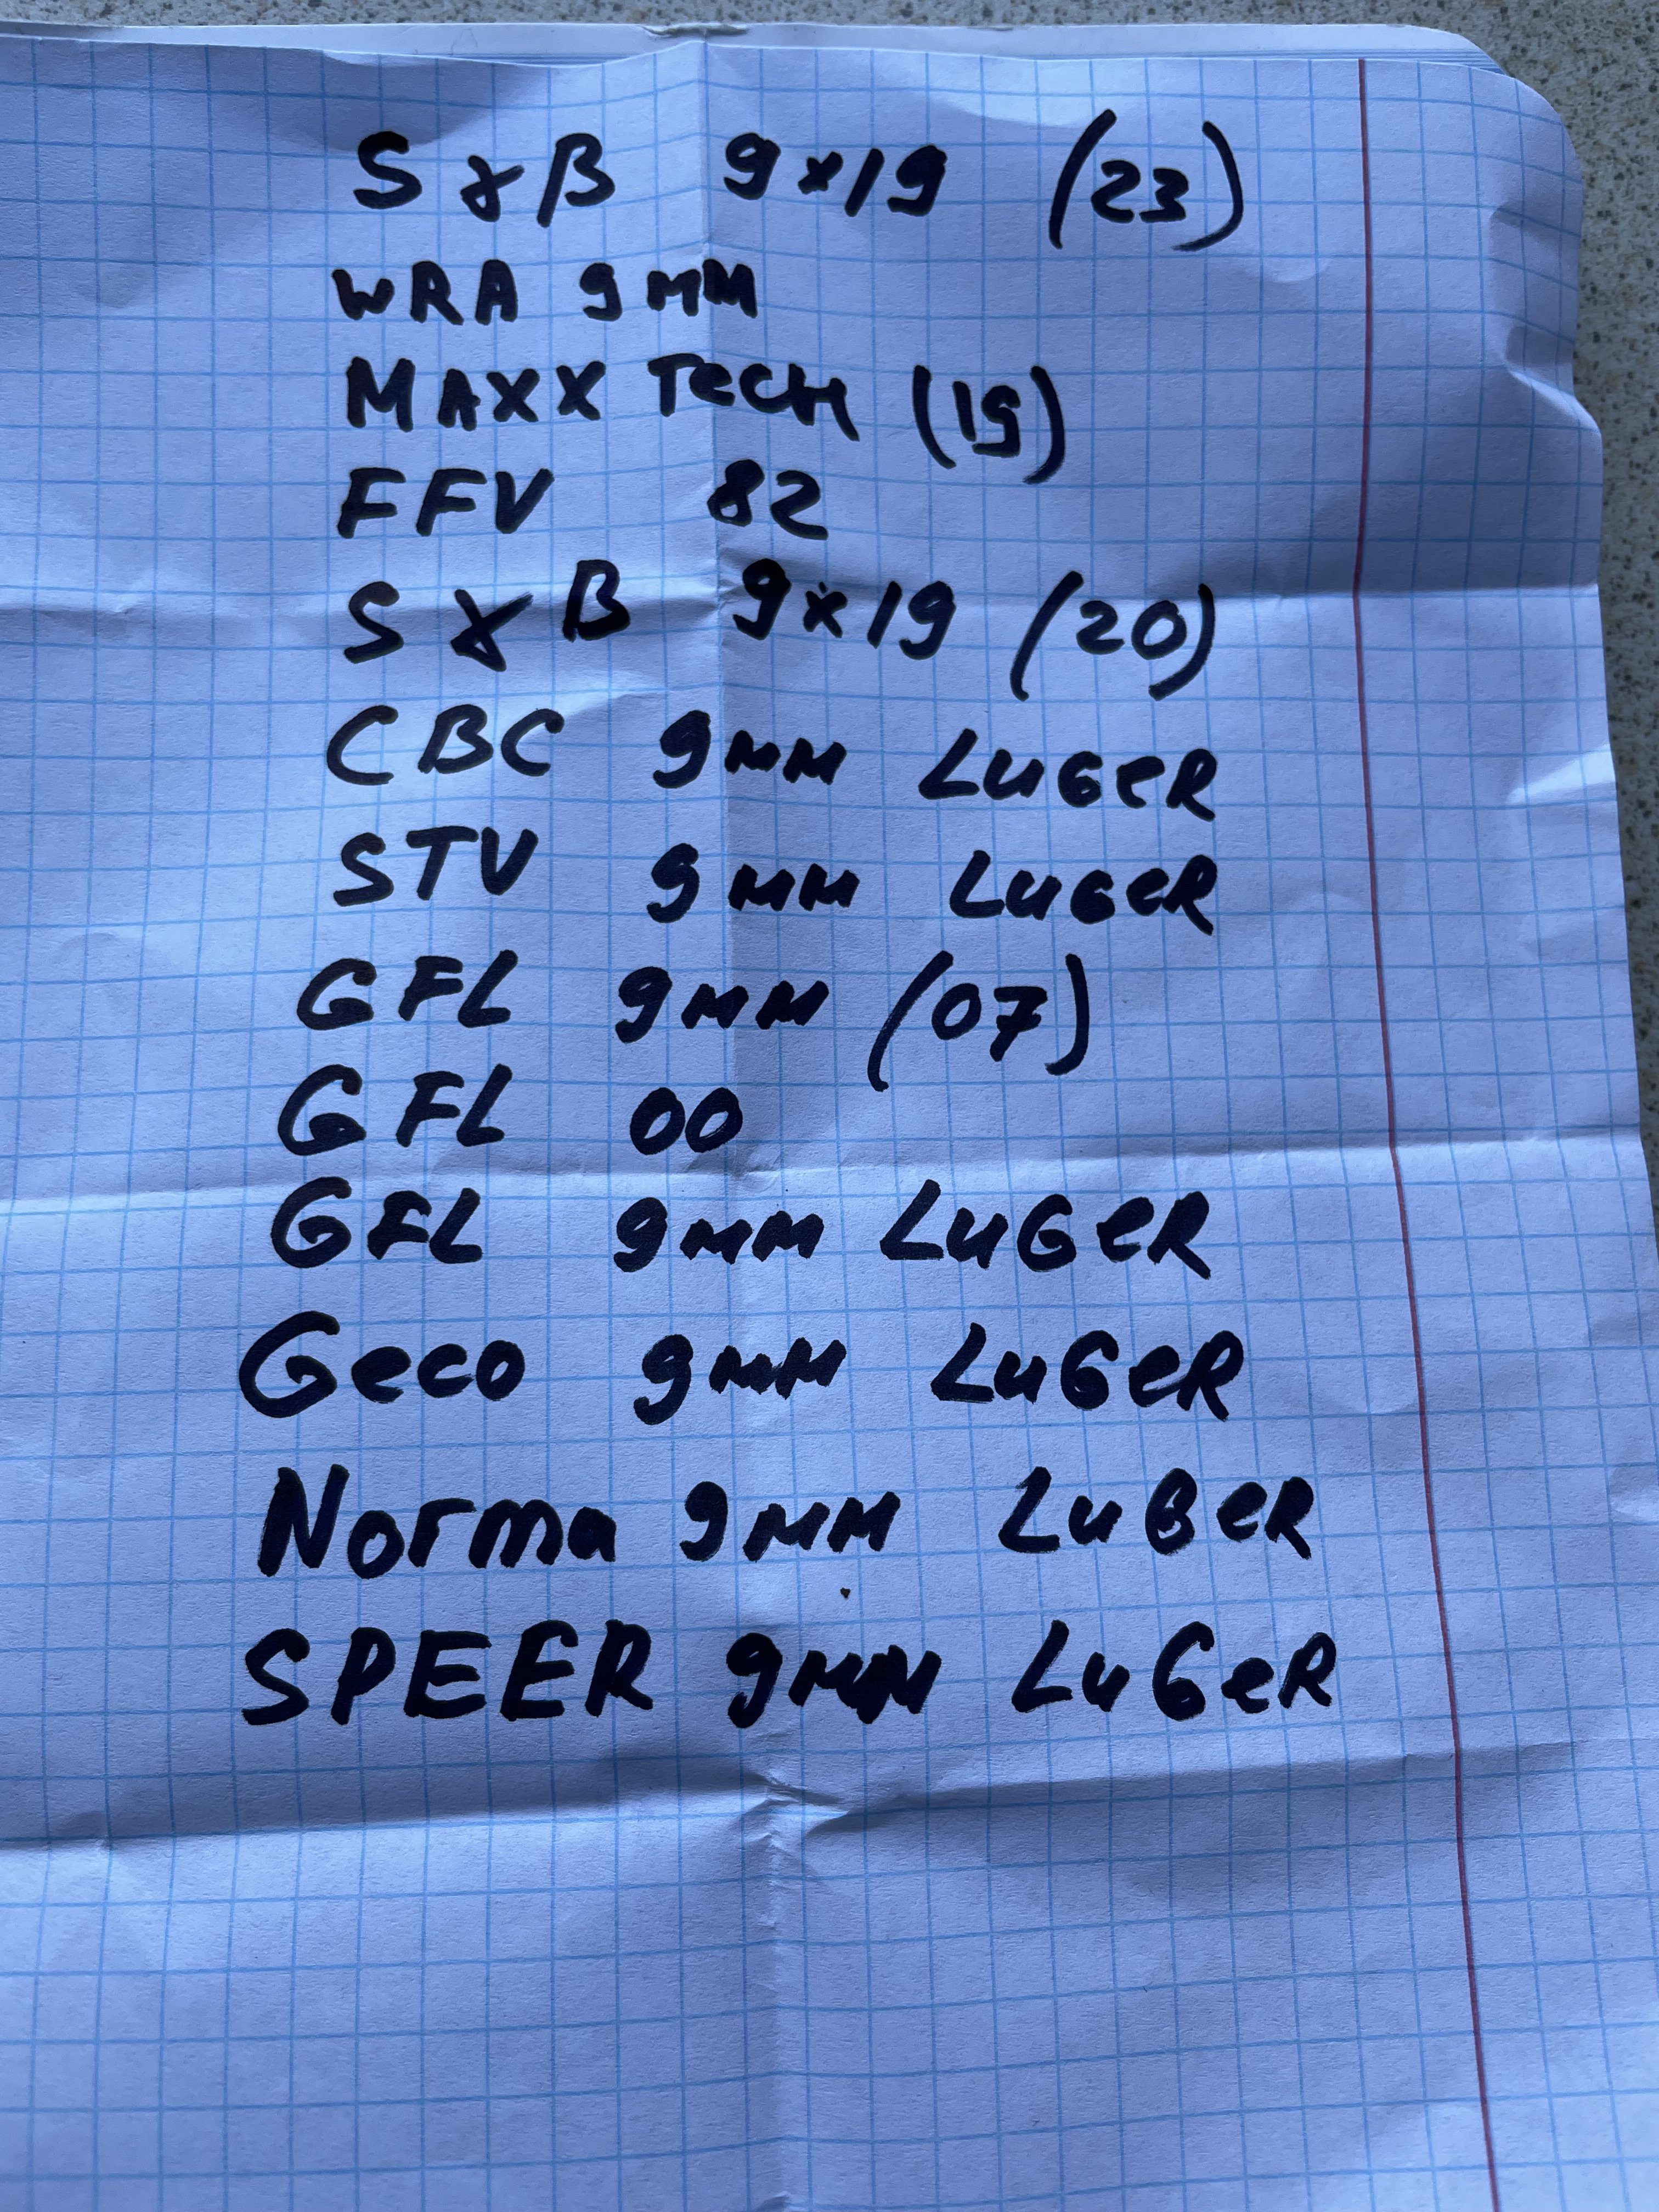 S & B 9x19 (23)
WRA 9MM
MAXX TecH (19)
FFV 82
S & B 9x19 (20)
CBC 9mm LuGeR
STV 9mm LuGeR
GFL 9mm (07)
GFL 00
GFL 9mm LuGeR
Geco 9mm LuGeR
Norma 9mm LuBeR
SPEER 9mm LuGeR